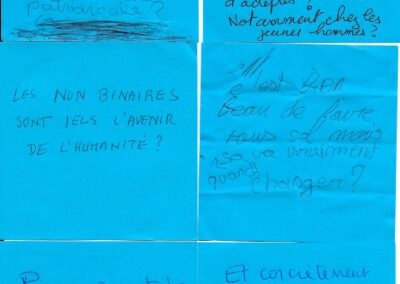 patriarcale ?
d'adeptes ?
Notamment chez les
jeunes hommes ?
LES NON BINAIRES
SONT IELS L'AVENIR
DE L'HUMANITÉ ?
c'est bien
Beau de faire
tous sa mais
sa va vraiment
quand
changer ?
Et concrètement